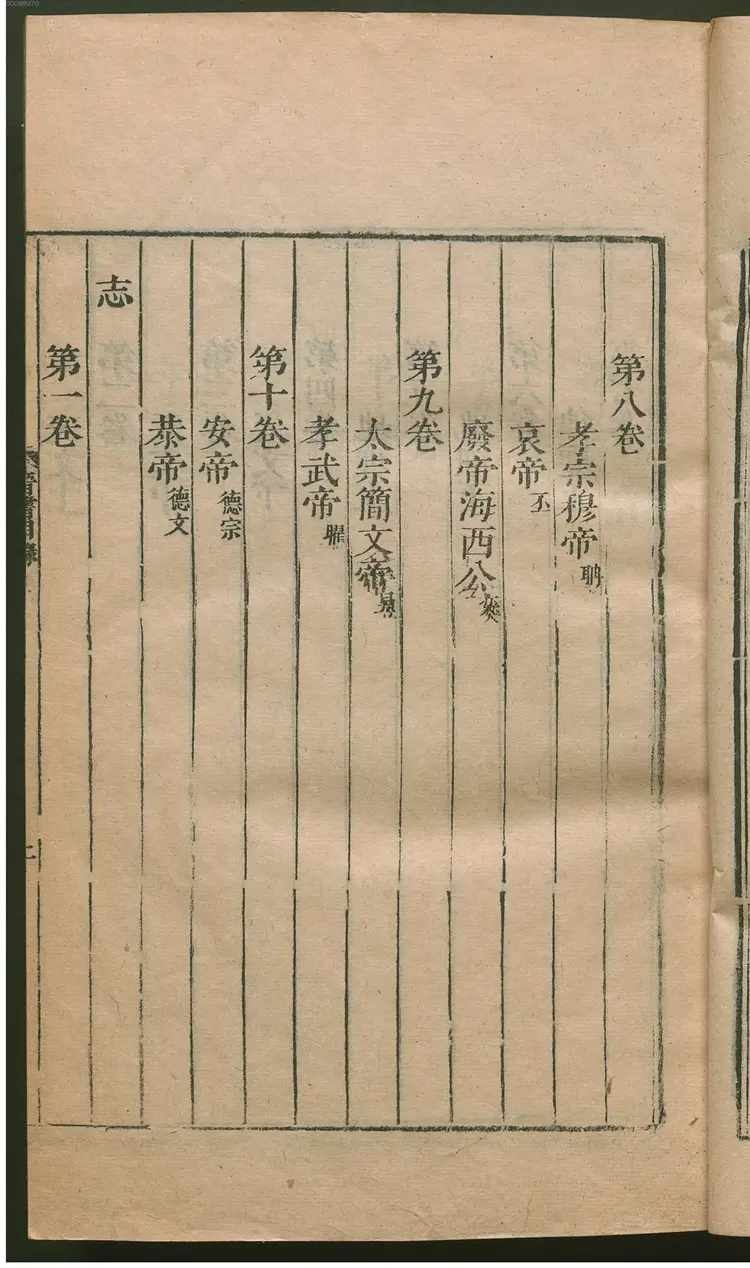 第八卷
孝宗穆帝聃
哀帝丕
廢帝海西公奕
第九卷
太宗簡文帝昱
孝武帝曜
第十卷
安帝德宗
恭帝德文
志
第一卷
00068370